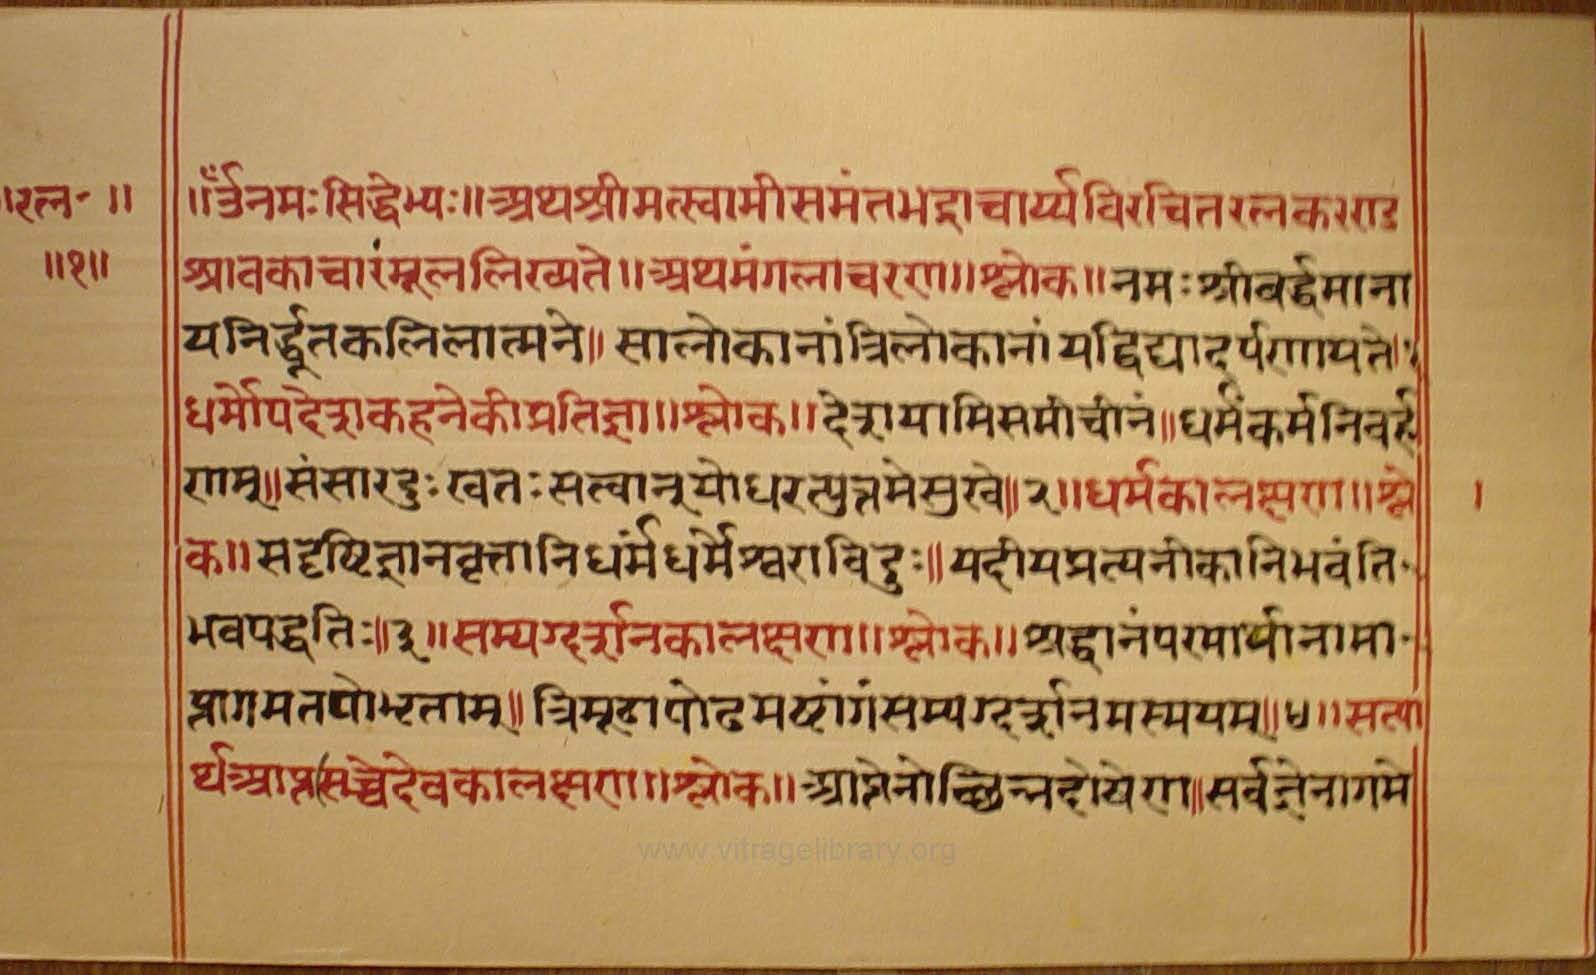 ॥रत्न॰॥
॥१॥
॥ॐनमःसिद्धेभ्यः॥अथश्रीमत्स्वामीसमंतभद्राचार्य्यविरचितरत्नकरराड
श्रावकाचारंमूललिख्यते॥अथमंगलाचरण॥श्लोक॥नमःश्रीवर्द्धमाना
यनिर्द्धूतकलिलात्मने॥सालोकानांत्रिलोकानांयद्विद्यादर्पणायते।१
धर्मोपदेशकहनेकीप्रतिज्ञा॥श्लोक॥देशयामिसमीचीनं॥धर्मंकर्मनिवर्ह
णम्॥संसारदुःखतःसत्वान्योधरत्युत्तमेसुखे॥२॥धर्मकालक्षण॥श्लो
क॥सदृष्टिज्ञानवृत्तानिधर्मंधर्मेश्वराविदुः॥यदीयप्रत्यनीकानिभवंति
भवपद्धतिः॥३॥सम्यग्दर्शनकालक्षण॥श्लोक॥श्रद्धानंपरमार्थानामा
प्तागमतपोभृताम्॥त्रिमूढापोढमष्टांगंसम्यग्दर्शनमस्मयम्॥४॥सत्या
र्थआप्त(सच्चेदेवकालक्षण॥श्लोक॥आप्तेनोच्छिन्नदोषेण॥सर्वज्ञेनागमे
।
www.vitragelibrary.org